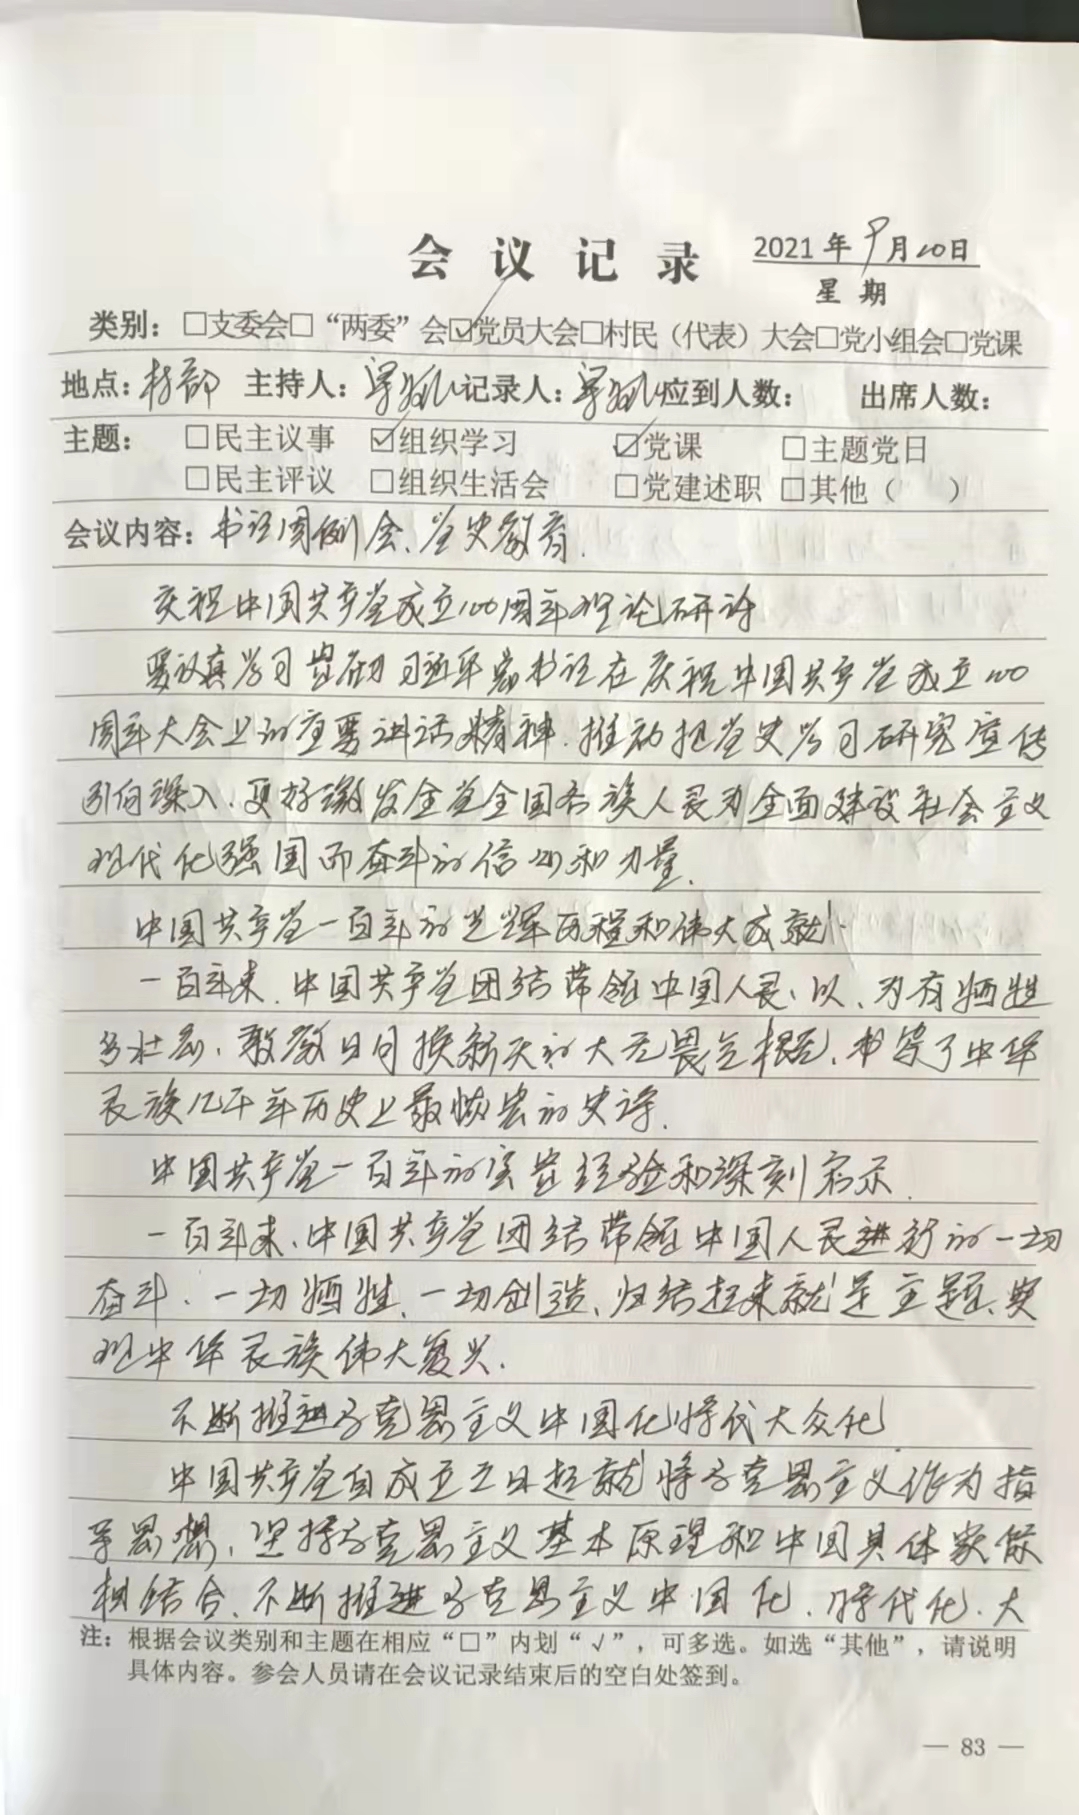 会议记录 2021年9月20日
星期
类别：□支委会□“两委”会☑党员大会□村民（代表）大会□党小组会□党课
地点：村部 主持人： 记录人： 应到人数： 出席人数：
主题： □民主议事 ☑组织学习 ☑党课 □主题党日
□民主评议 □组织生活会 □党建述职 □其他（ ）
会议内容：书记周例会、党史教育.
庆祝中国共产党成立100周年理论研讨
要认真学习贯彻习近平总书记在庆祝中国共产党成立100
周年大会上的重要讲话精神.推动把党史学习研究宣传
引向深入、更好激发全党全国各族人民为全面建设社会主义
现代化强国而奋斗的信心和力量.
中国共产党一百年的光辉历程和伟大成就.
一百年来.中国共产党团结带领中国人民、以、为有牺牲
多壮志、敢教日月换新天的大无畏气概、书写了中华
民族几千年历史上最恢宏的史诗.
中国共产党一百年的宝贵经验和深刻启示.
一百年来、中国共产党团结带领中国人民进行的一切
奋斗.一切牺牲、一切创造、归结起来就是主题、实
现中华民族伟大复兴.
不断推进马克思主义中国化时代大众化
中国共产党自成立之日起就将马克思主义作为指
导思想、坚持马克思主义基本原理和中国具体实际
相结合、不断推进马克思主义中国化、时代化、大
注：根据会议类别和主题在相应“□”内划“√”，可多选。如选“其他”，请说明
具体内容。参会人员请在会议记录结束后的空白处签到。
— 83 —